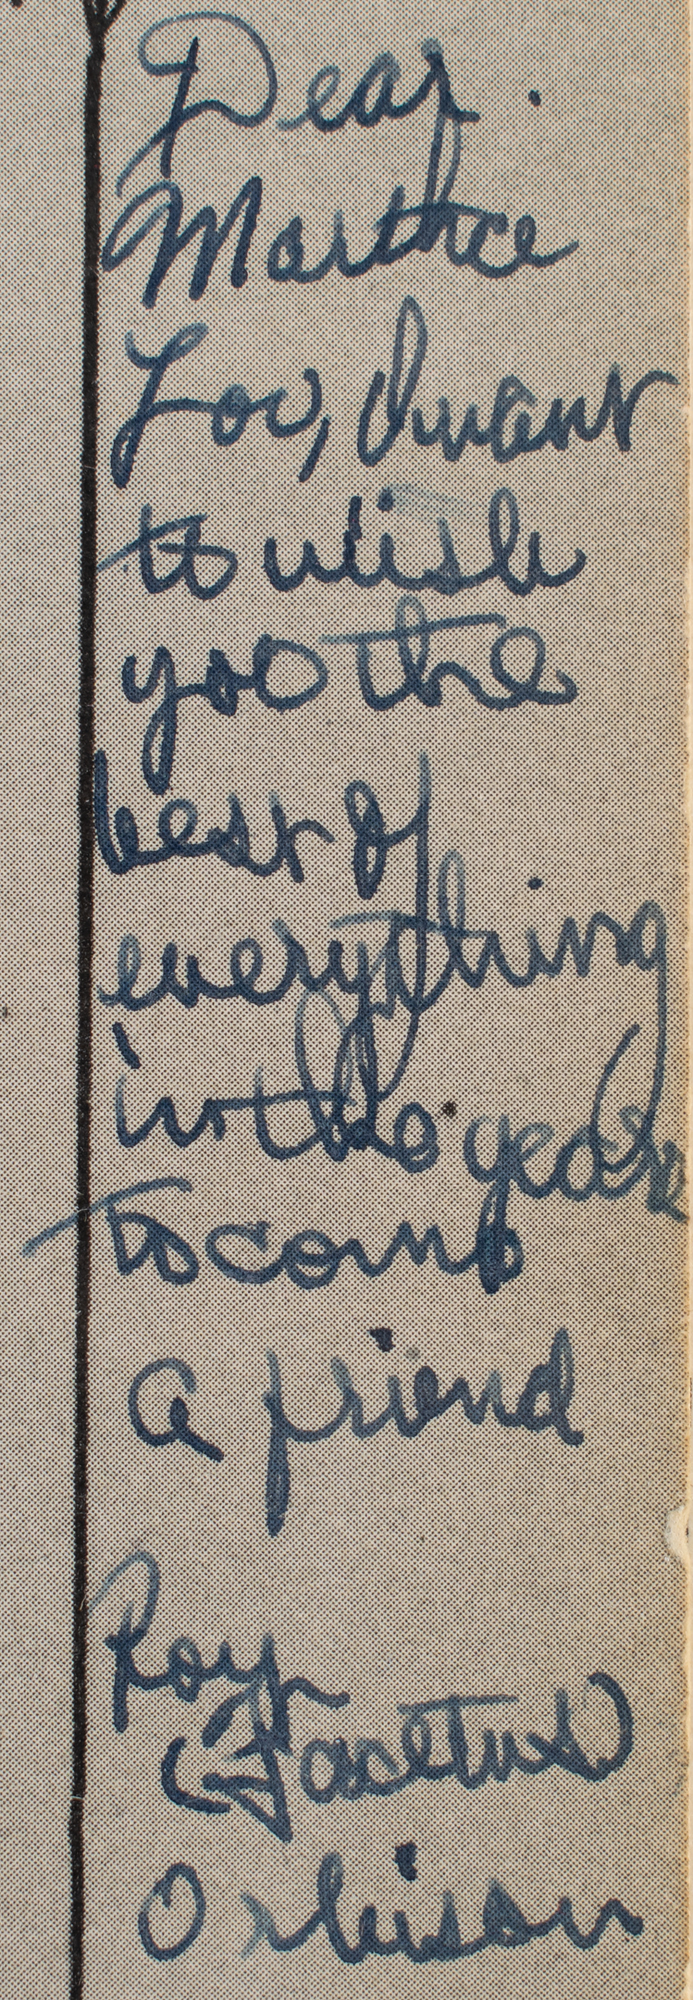 Dear
Martha
Lou, I want
to wish
you the
best of
everything
in the years
to come
A friend
Roy
(Facetus)
Orbison